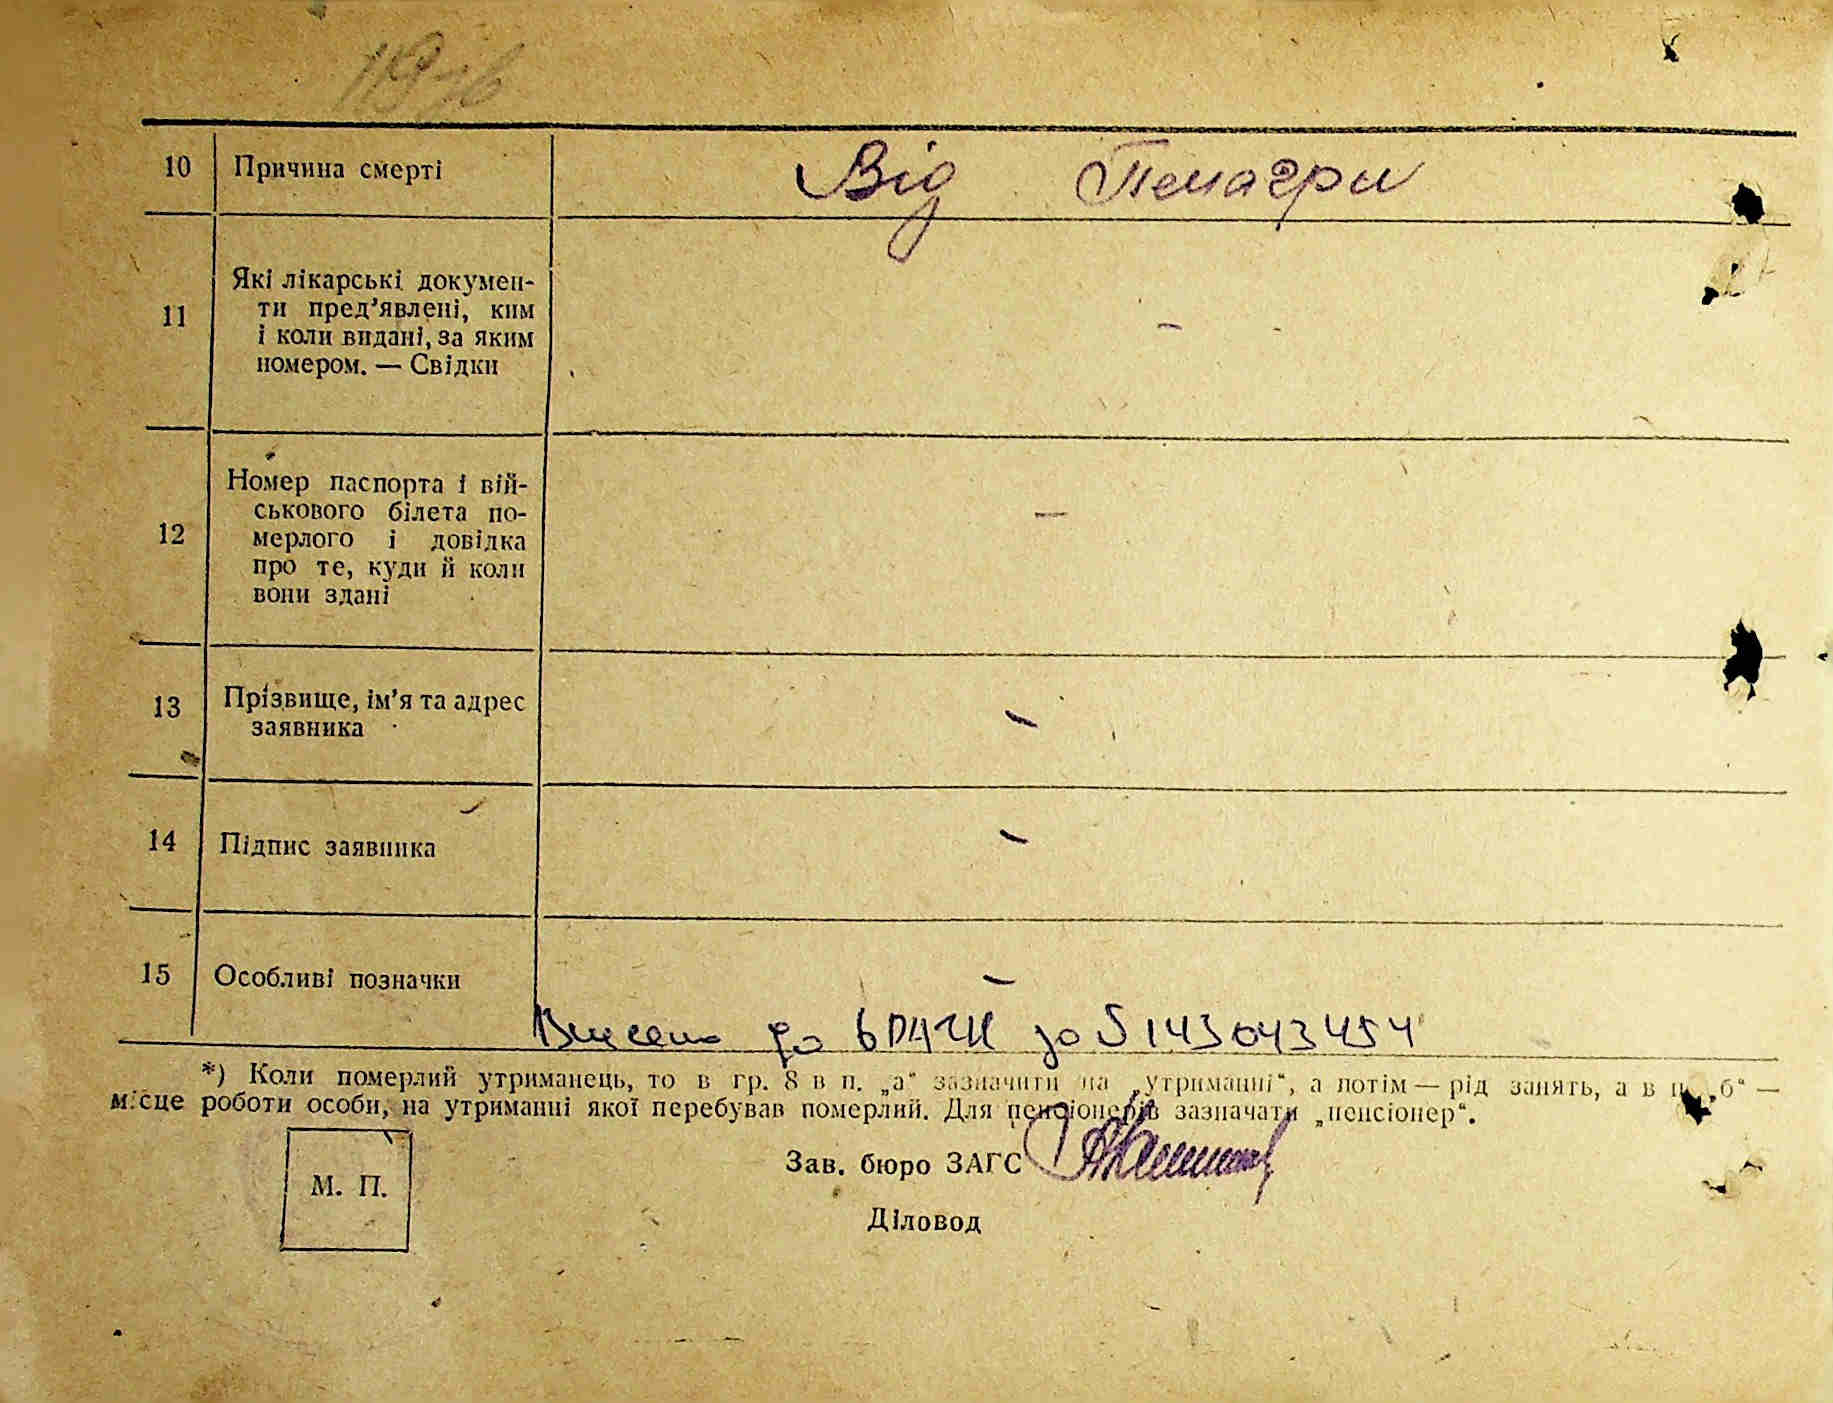 10 Причина смерті Від Пелагри
11 Які лікарські докумен-
ти пред’явлені, ким
і коли видані, за яким
номером. — Свідки -
12 Номер паспорта і вій-
ськового білета по-
мерлого і довідка
про те, куди й коли
вони здані —
13 Прізвище, ім’я та адрес
заявника -
14 Підпис заявника -
15 Особливі позначки -
Внесено до ДРАЦС за 5143043454
*) Коли померлий утриманець, то в гр. 8 в п. „а“ зазначити на „утриманні“, а потім — рід занять, а в п. „б“ —
місце роботи особи, на утриманні якої перебував померлий. Для пенсіонерів зазначати „пенсіонер“.
Зав. бюро ЗАГС
М. П.
Діловод